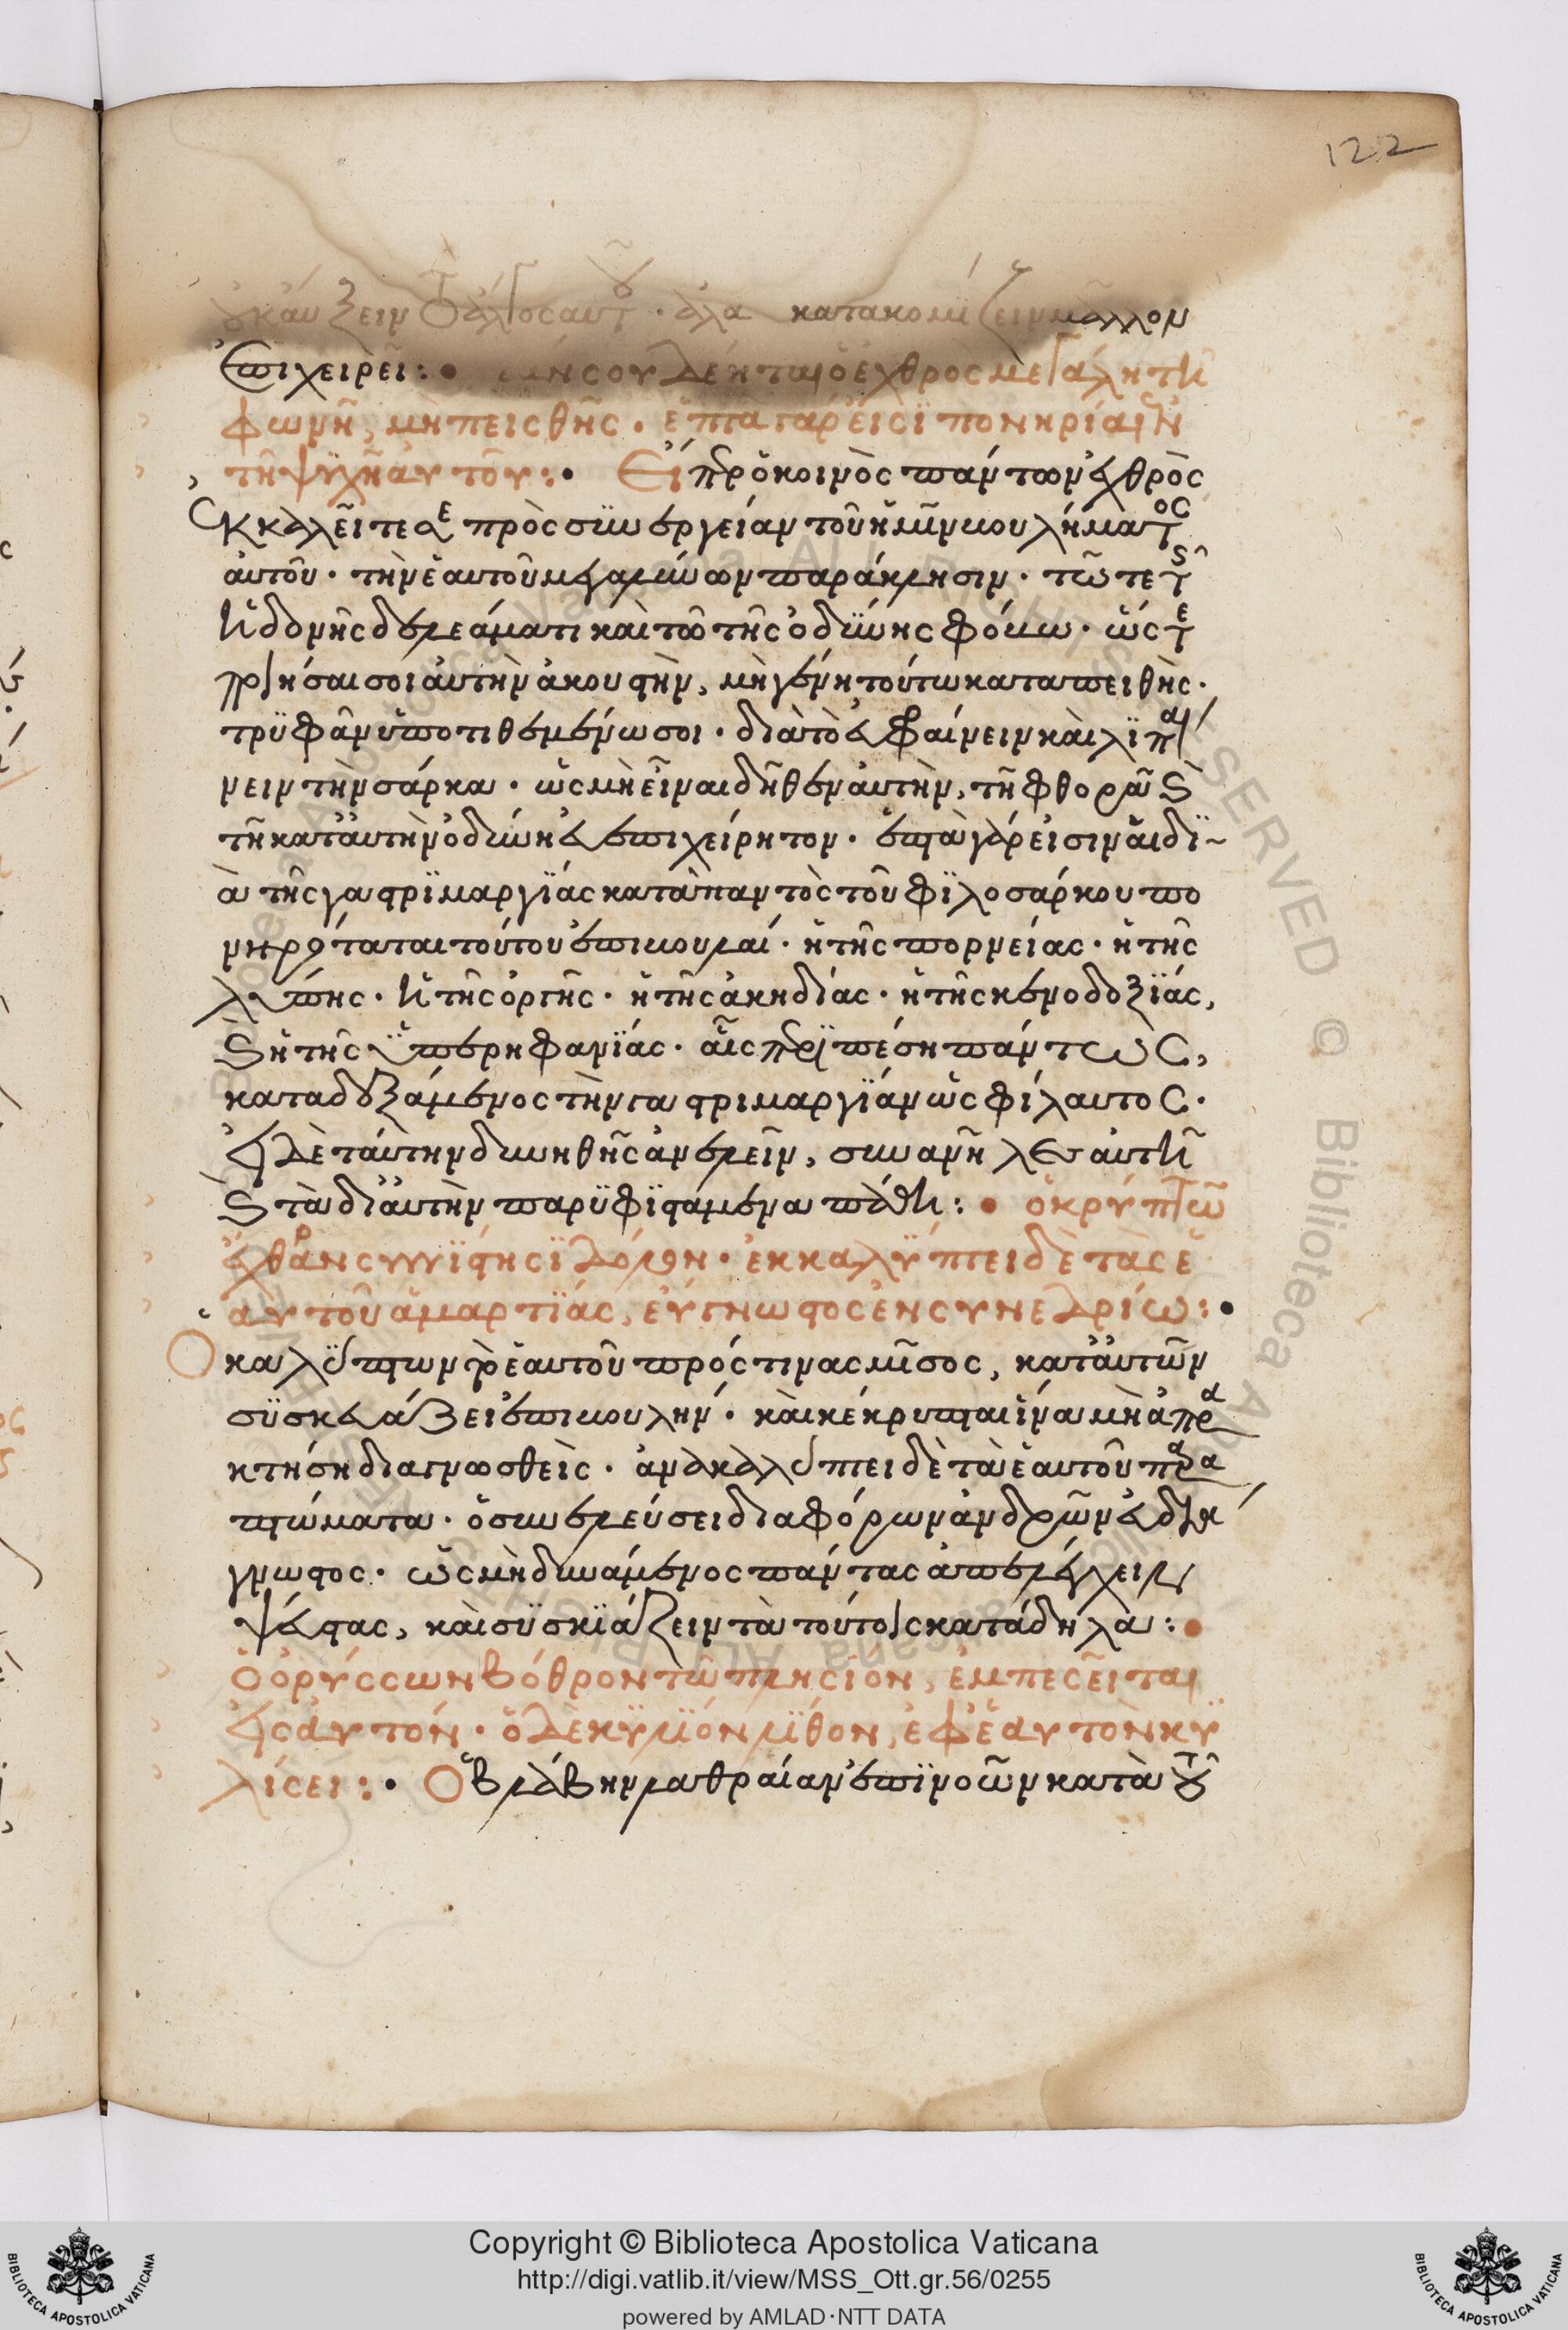 122
οὐκ αὔξειν τὸ ἄλγος αὐτοῦ· ἀλλὰ κατακομίζειν μᾶλλον
ἐπιχειρεῖ:
σου δέηται ὁ ἐχθρὸς μεγάλη τῆ
φωνῆ, μὴ πεισθῆς· ἑπτὰ γάρ εἰσϊ πονηρίαι ἐν
τῆ ψϋχῆ αὐτοῦ:· Εἰ πρὸ κοινὸς πάντων ἐχθρὸς
ἐκκαλεῖτε σε πρὸς συνεργείαν τοῦ ἡμῖν βουλήματος
αὐτοῦ· τὴν ἑαυτοῦ μεγαλύνων παράκλησιν· τῶ τε τῆς
ἡδονῆς δελεάματι καὶ τῶ τῆς ὀδύνης φόβω· ὥστε
πλησαι σοι αὐτὴν ἀκουστὴν, μὴ γένη τούτω καταπειθής·
τρϋφᾶν ὑποτιθεμένω σοι· διὰ τὸ ἐκφαίνειν καὶ λϊπαί
νειν τὴν σάρκα· ὡς μὴ εἶναι δῆθεν αὐτὴν, τῆ φθορᾶ καὶ
τῆ κατ' αὐτὴν ὀδύνη εὐεπιχείρητον· ἑπτὰ γάρ εἰσιν ἀϊδϊ
ὰ τῆς γαστρϊμαργϊάς κατὰ παντὸς τοῦ φϊλοσάρκου πο
νηρόταται τούτου ἐπιβουλαί· ἡ τῆς πορνείας· ἡ τῆς
λύπης· ἡ τῆς ὀργῆς· ἡ τῆς ἀκηδίας· ἡ τῆς κενοδοξϊάς,
καὶ ἡ τῆς ὑπερηφανϊάς· αἷς περιπέση πάντως,
καταδεξάμενος τὴν γαστριμαργϊάν ὡς φίλαυτος·
εἰ δὲ ταύτην δυνηθῆς ἀνελεῖν, συνανῆλες αὐτῆ
καὶ τὰ δι' αὐτὴν παρϋφϊστάμενα πάθη: ὁ κρύπτων
ἔχθραν συνϊστησϊ δόλον· ἐκκαλϋπτει δὲ τὰς ἑ
αυτοῦ ἁμαρτϊάς, εὔγνωστος ἐν συνεδρίω:·
Ὁ καλύπτων τὸ ἑαυτοῦ πρός τινας μῖσος, κατ' αὐτῶν
σϋσκευάζει ἐπιβουλήν· καὶ κέκρυπται ἵνα μὴ ἀπρα
κτήση διαγνωσθεὶς· ἀνακαλύπτει δὲ τὰ ἑαυτοῦ παρα
πτώματα· ὁ συνελεύσει διαφόρων ἀνδρῶν εὐδιά
γνωστος· ὡς μὴ δυνάμενος πάντας ἀπελέγχειν
ψεύστας, καὶ σϋσκϊάζειν τὰ τούτοις κατάδηλα:
Ὁ ὀρύσσων βόθρον τῶ πλησίον, ἐμπεσεῖται
εἰς αὐτόν· ὁ δὲ κϋλϊόν λϊθον, ἐφ' ἑαυτὸν κυ
λίσει:· Ὁ βλάβην λαθραίαν ἐπϊνοῶν κατὰ τοῦ
Copyright © Biblioteca Apostolica Vaticana
http://digi.vatlib.it/view/MSS_Ott.gr.56/0255
powered by AMLAD·NTT DATA
BIBLIOTECA APOSTOLICA VATICANA
BIBLIOTECA APOSTOLICA VATICANA